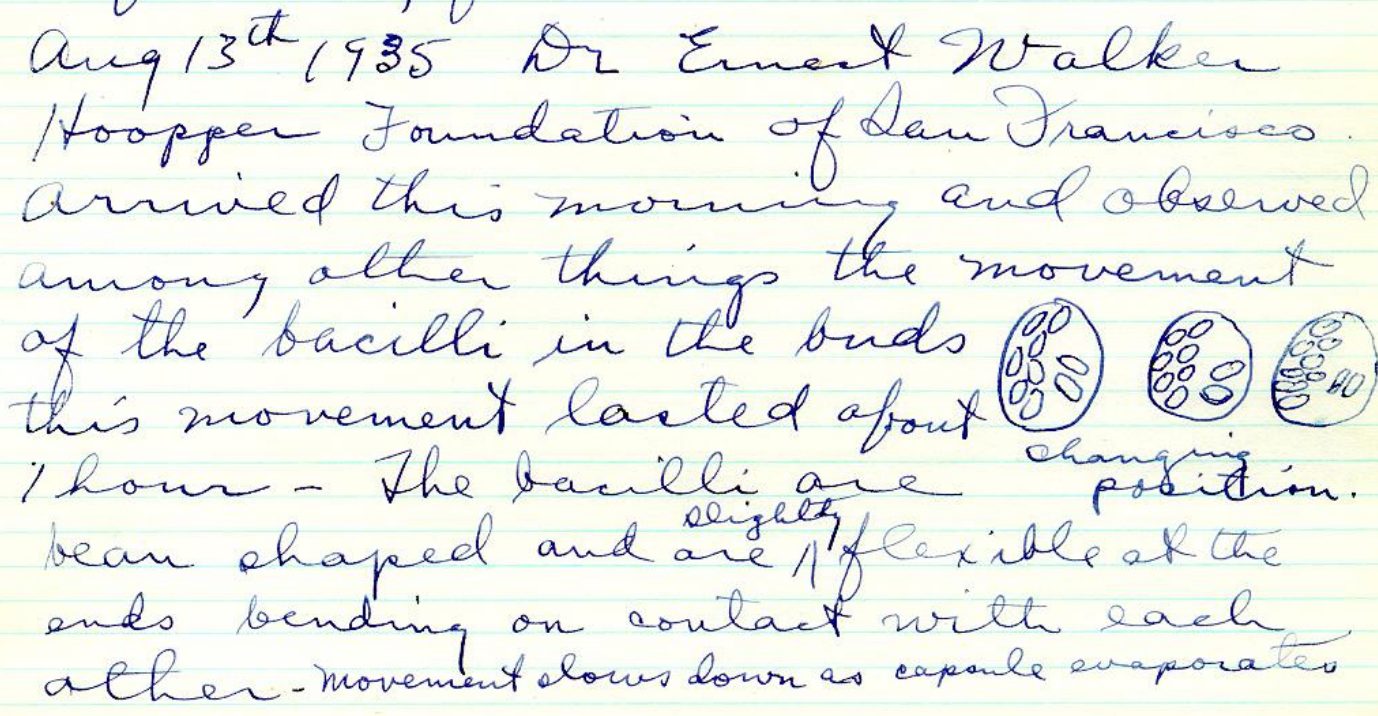 Aug 13th 1935 Dr Ernest Walker
Hoopper Foundation of San Francisco.
arrived this morning and observed
among other things the movement
of the bacilli in the buds
this movement lasted about
1 hour - The bacilli are
changing
position.
bean shaped and are slightly flexible at the
ends bending on contact with each
other - movement slows down as capsule evaporates